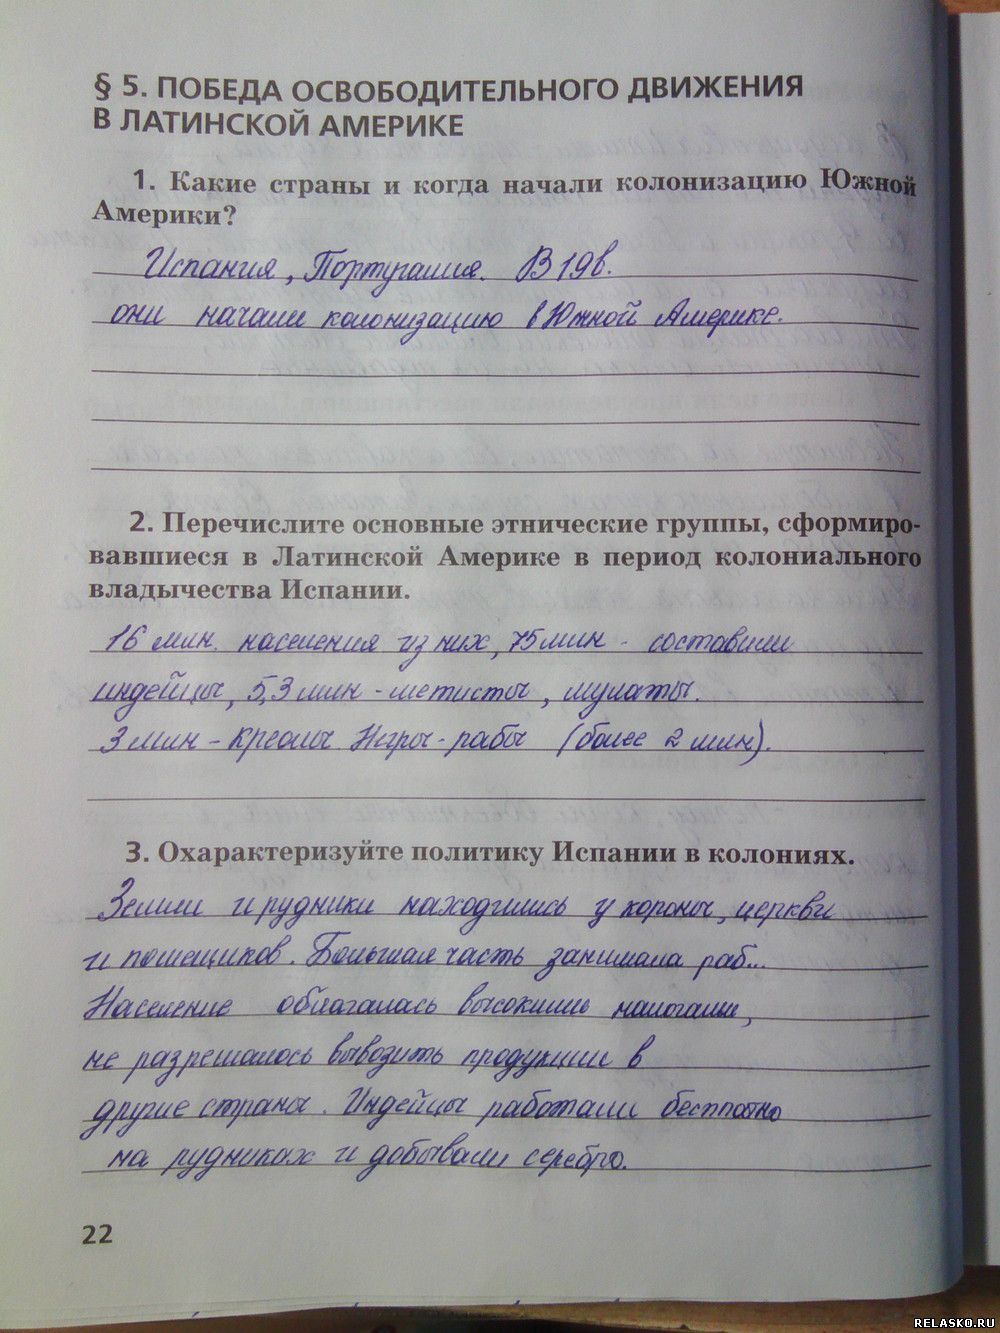 § 5. ПОБЕДА ОСВОБОДИТЕЛЬНОГО ДВИЖЕНИЯ
В ЛАТИНСКОЙ АМЕРИКЕ
1. Какие страны и когда начали колонизацию Южной
Америки?
Испания, Португалия. В 19в.
они начали колонизацию в Южной Америке.
2. Перечислите основные этнические группы, сформиро-
вавшиеся в Латинской Америке в период колониального
владычества Испании.
16 млн. населения из них, 75 млн - составили
индейцы, 5,3 млн - метисты, мулаты.
3 млн - креолы. Негры - рабы (более 2 млн).
3. Охарактеризуйте политику Испании в колониях.
Земли и рудники находились у короны, церкви
и помещиков. Большая часть занимала раб...
Население облагалась высокими налогами,
не разрешалось вывозить продукции в
другие страны. Индейцы работали бесплатно
на рудниках и добывали серебро.
22
RELASKO.RU